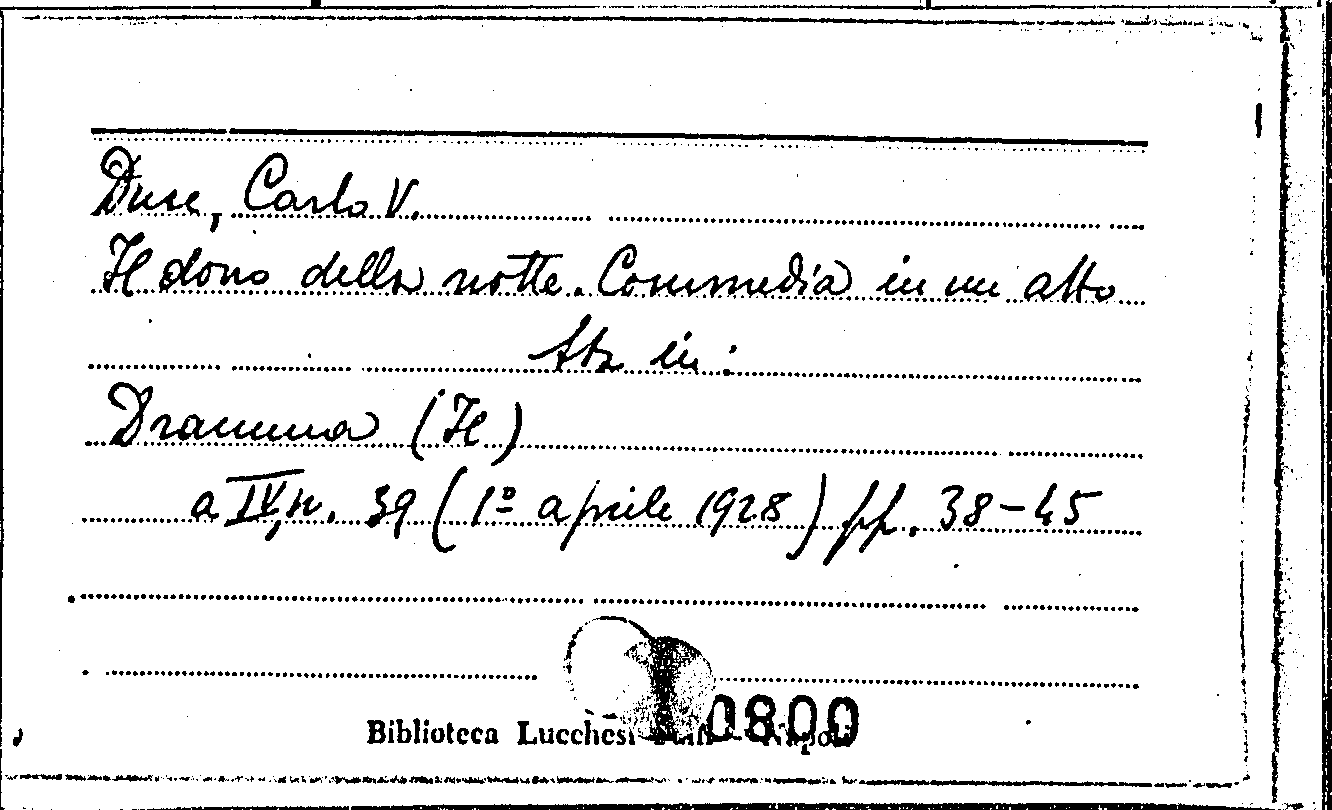 Duse, Carlo V.
Il dono della notte. Commedia in un atto
Sta in:
Dramma (Il)
a IV, n. 39 (1º aprile 1928) pp. 38-45
0800
Biblioteca Lucchesi - Napoli